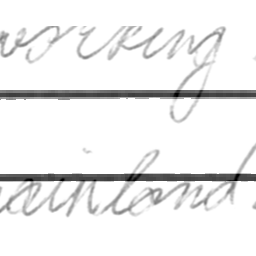 working
mainland.